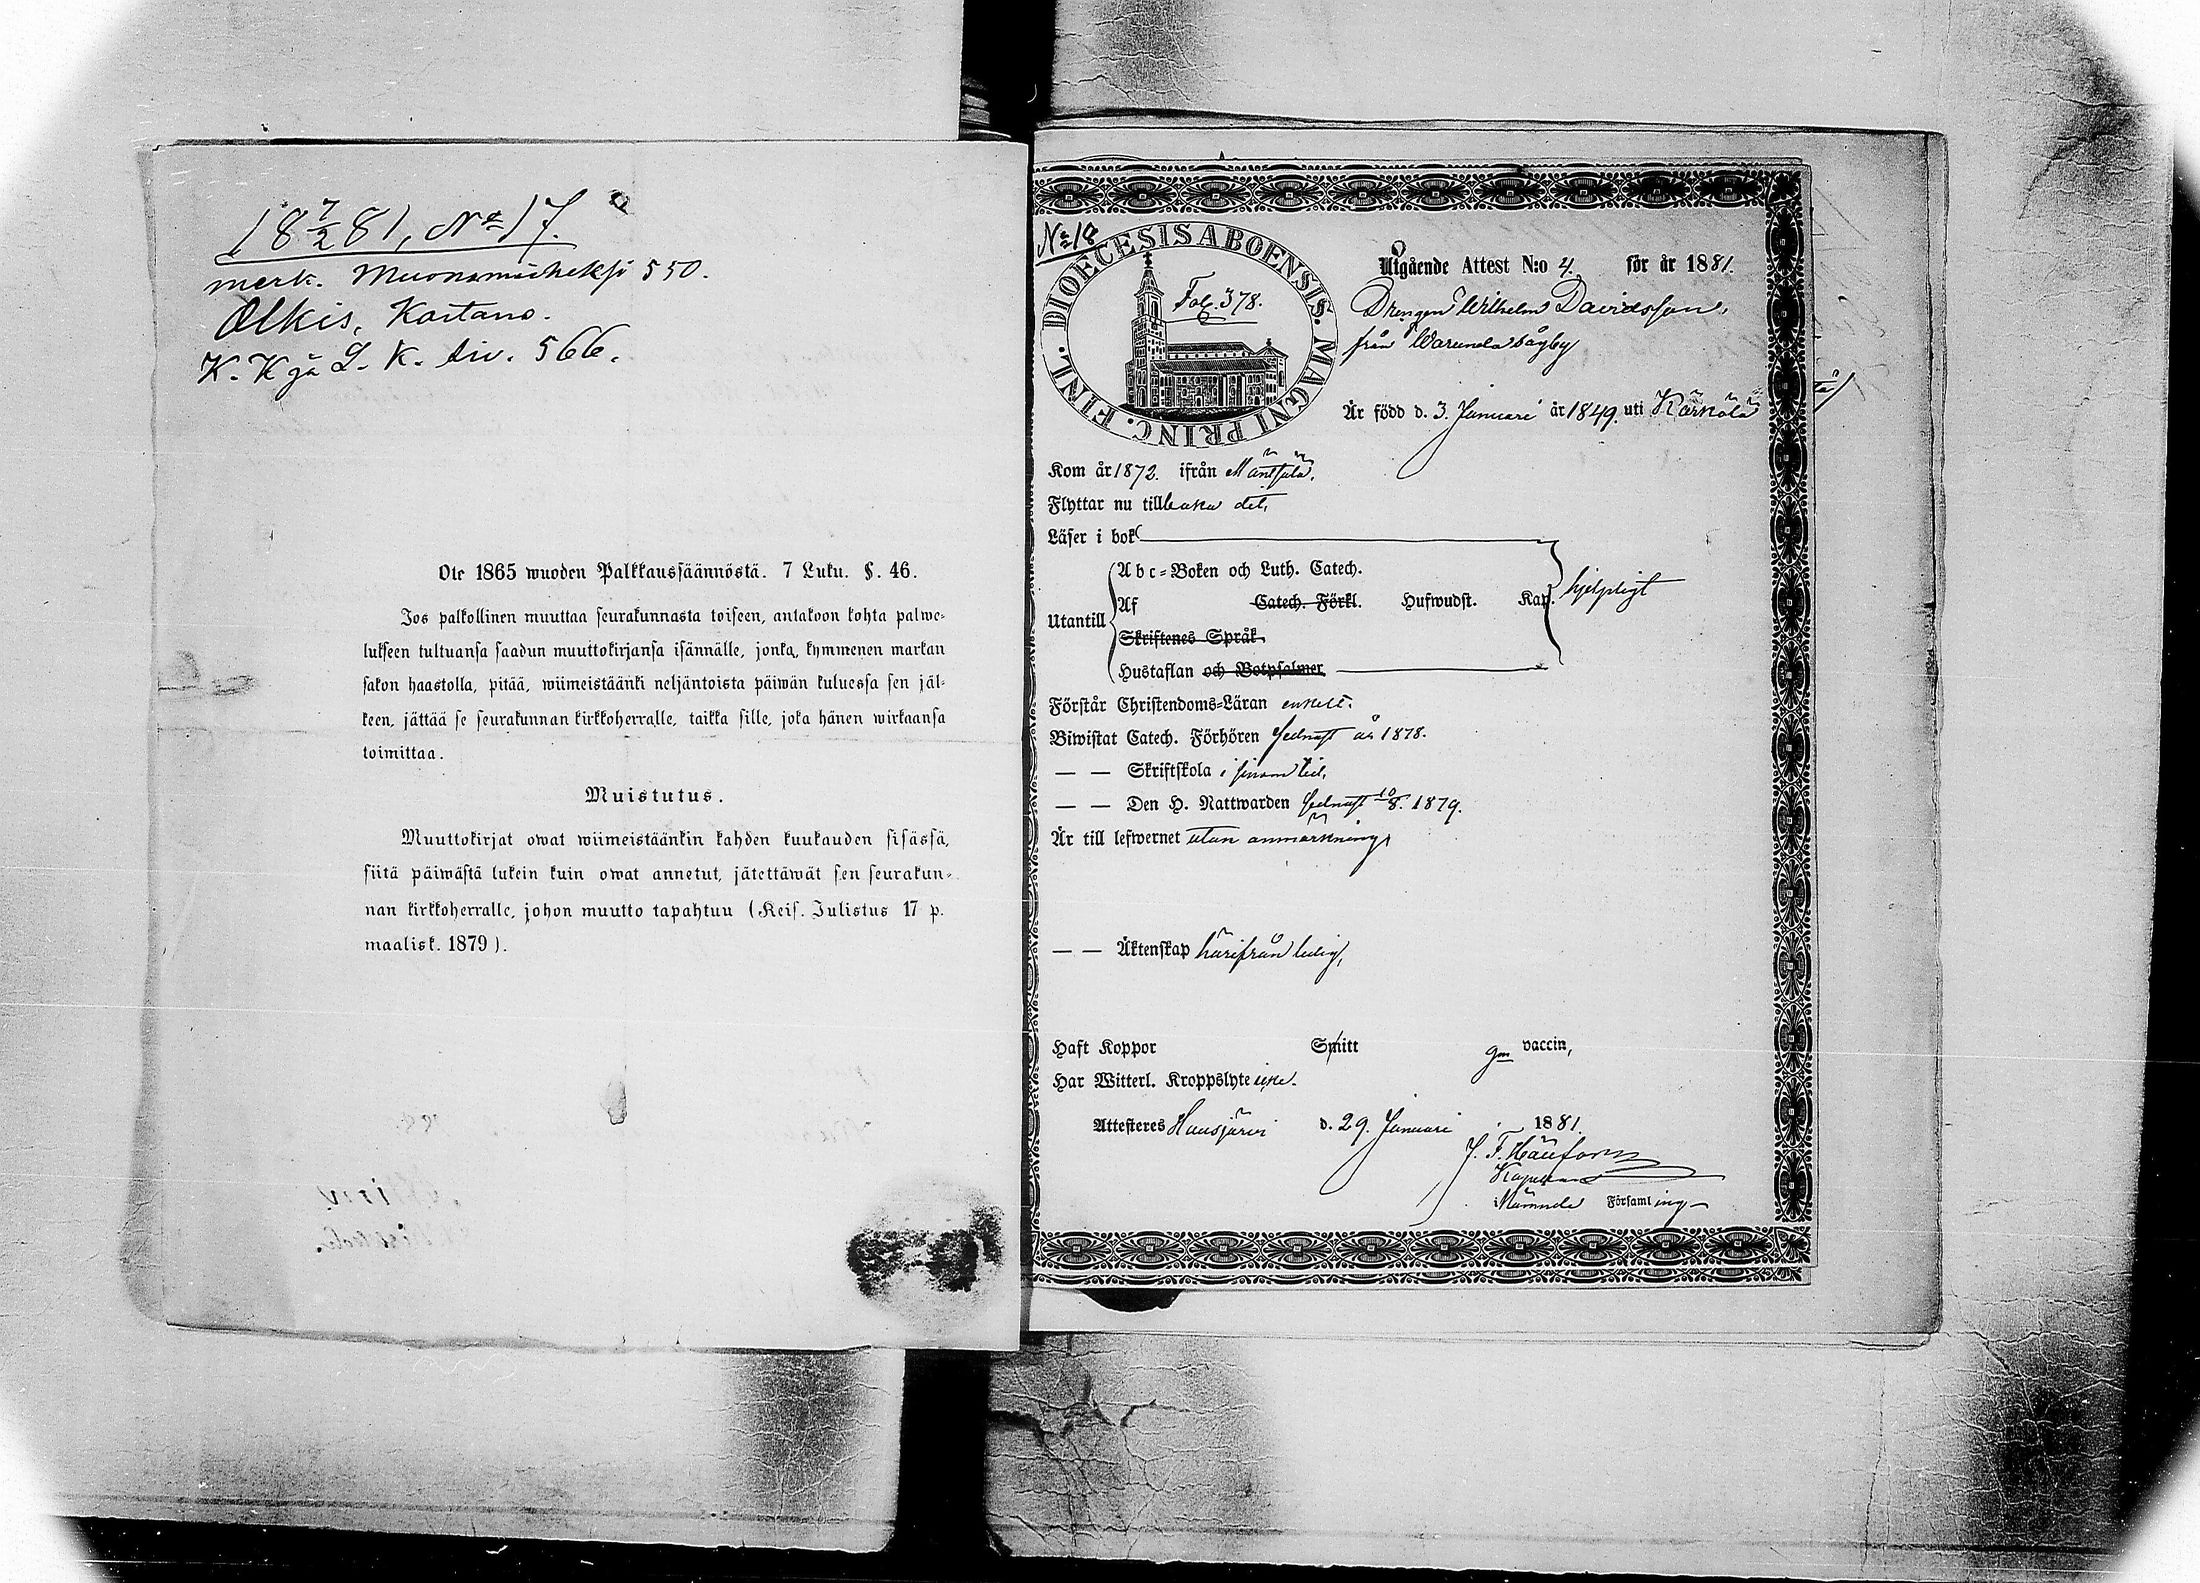 18 7/2 81, No 17.
merk. Muonamieheksi 550.
Olkis, Kartano.
K. K ja L. K. siv. 566.
Ote 1865 wuoden Palkkaussäännöstä. 7 Luku. §. 46.
Jos palkollinen muuttaa seurakunnasta toiseen, antakoon kohta palwe-
lukseen tultuansa saadun muuttokirjansa isännälle, jonka, kymmenen markan
sakon haastolla, pitää, wiimeistäänki neljäntoista päiwän kuluessa sen jäl-
keen, jättää se seurakunnan kirkkoherralle, taikka sille, joka hänen wirkaansa
toimittaa.
Muistutus.
Muuttokirjat owat wiimeistäänkin kahden kuukauden sisässä,
siitä päiwästä lukein kuin owat annetut, jätettäwät sen seurakun-
nan kirkkoherralle, johon muutto tapahtuu (Keis. Julistus 17 p.
maalisk. 1879).
No 18
FINL. DIOECESIS ABOENSIS. MAGNI PRINC.
Fol. 378.
Utgående Attest N:o 4. för år 1881.
Drengen Wilhelm Davidsson,
från Warunda bågby
Är född d. 3. Januari år 1849. uti Kärkölä
Kom år 1872. ifrån Mäntsälä.
Flyttar nu tillbaka dit,
Läser i bok
Abc-Boken och Luth. Catech.
Utantill Af Catech. Förkl. Hufwudst. Kap. hjelpligt
Skriftenes Språk
Hustaflan och Botpsalmer.
Förstår Christendoms-Läran enkelt.
Biwistat Catech. Förhören sednast år 1878.
— — Skriftskola i sinom tid,
— — Den H. Nattwarden sednast 10/8. 1879.
Är till lefwernet utan anmärkning,
— — Äktenskap härifrån ledig,
Haft Koppor Smitt gm vaccin,
Har Witterl. Kroppslyte icke.
Attesteres Hausjärvi d. 29. Januari 1881.
J. F.
Kapellan
Församling